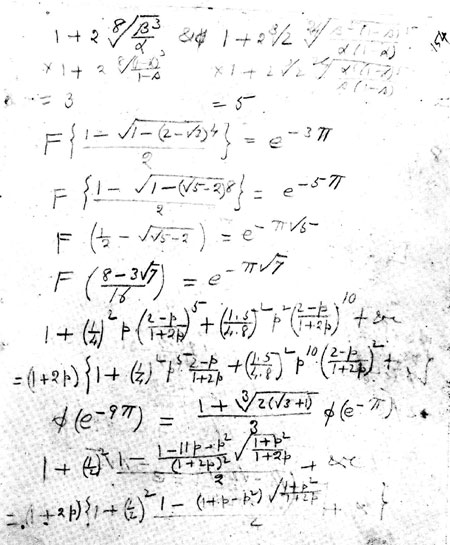 1 + 2 ⁸√(β³/α) & 1 + 2^{3/2}
× 1 + 2 × 1 + 2
= 3 = 5
F{(1 - √(1 - (2 - √3)⁴))/2} = e^{-3π}
F{(1 - √(1 - (√5 - 2)⁸))/2} = e^{-5π}
F(1/2 - √(√5 - 2)) = e^{-π√5}
F((8 - 3√7)/16) = e^{-π√7}
1 + (1/4)² p (2-p/1+2p)⁵ + (1·5/4·8)² p² (2-p/1+2p)¹⁰ + &c
= (1+2p){1 + (1/4)² p⁵ 2-p/1+2p + (1·5/4·8)² p¹⁰ (2-p/1+2p)² +
ϕ(e^{-9π}) = (1 + ∛(2(√3+1)))/3 ϕ(e^{-π})
1 + (1/2)² (1 - (1-11p+p²)/(1+2p)² √(1+p²/1+2p))/2 + &c
= (1+2p){1 + (1/2)² 1 - (1+p-p²) √(1+p²/1+2p)